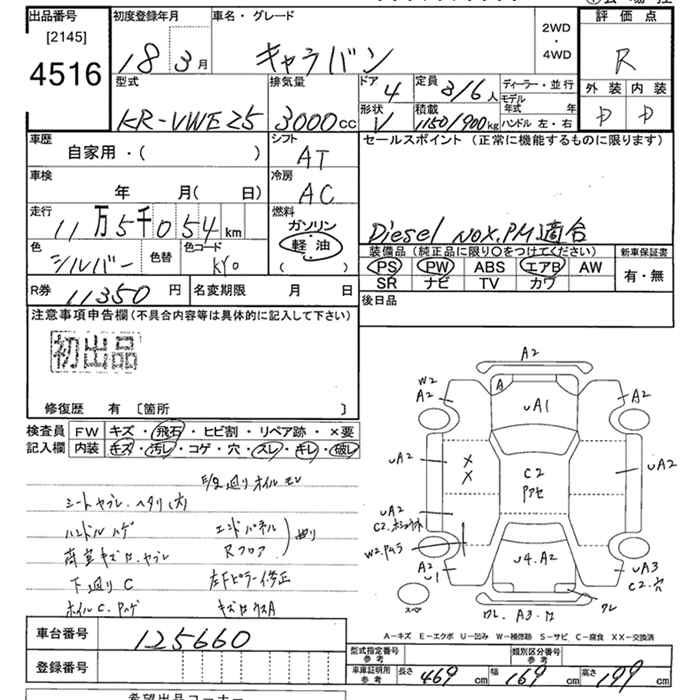 出品番号
[2145]
4516
初度登録年月
18 3月
車名・グレード
キャラバン
2WD
・
4WD
評価点
R
外装 内装
D D
型式
KR-VWE25
排気量
3000cc
ドア
4
定員
3/6人
ディーラー・並行
モデル
年式 年
形状
V
積載
1150/900kg
ハンドル 左・右
車歴
自家用・( )
シフト
AT
セールスポイント (正常に機能するものに限ります)
Diesel NOX.PM適合
車検
年 月( 日)
冷房
AC
走行
11万5千054km
燃料
ガソリン
軽油
( )
色
シルバー
色替
色コード
KY0
装備品 (純正品に限り○をつけてください)
PS PW ABS エアB AW
SR ナビ TV カワ
新車保証書
有・無
R券 11350円
名変期限 月 日
後日品
注意事項申告欄(不具合内容等は具体的に記入して下さい)
初出品
修復歴 有 [箇所 ]
検査員
記入欄
FW キズ・飛石・ヒビ割・リペア跡・×要
内装 キズ・汚レ・コゲ・穴・スレ・キレ・破レ
シートヤブレ.ヘタリ(大)
ハンドルハゲ
エンドパネル
Rフロア
下廻りC
左Fピラー修正
A2
A
uA1
W2
A2
A2
uA2
X
X
C2
uA2
uA2
W2
u4.A2
A2
u1
uA3
C2.穴
ワレ
A-キズ E-エクボ U-凹み W-補修跡 S-サビ C-腐食 XX-交換済
車台番号
125660
登録番号
型式指定番号
参考
類別区分番号
参考
車庫証明用
参考
長さ 469cm
幅 169cm
高さ 199cm
希望出品コーナー